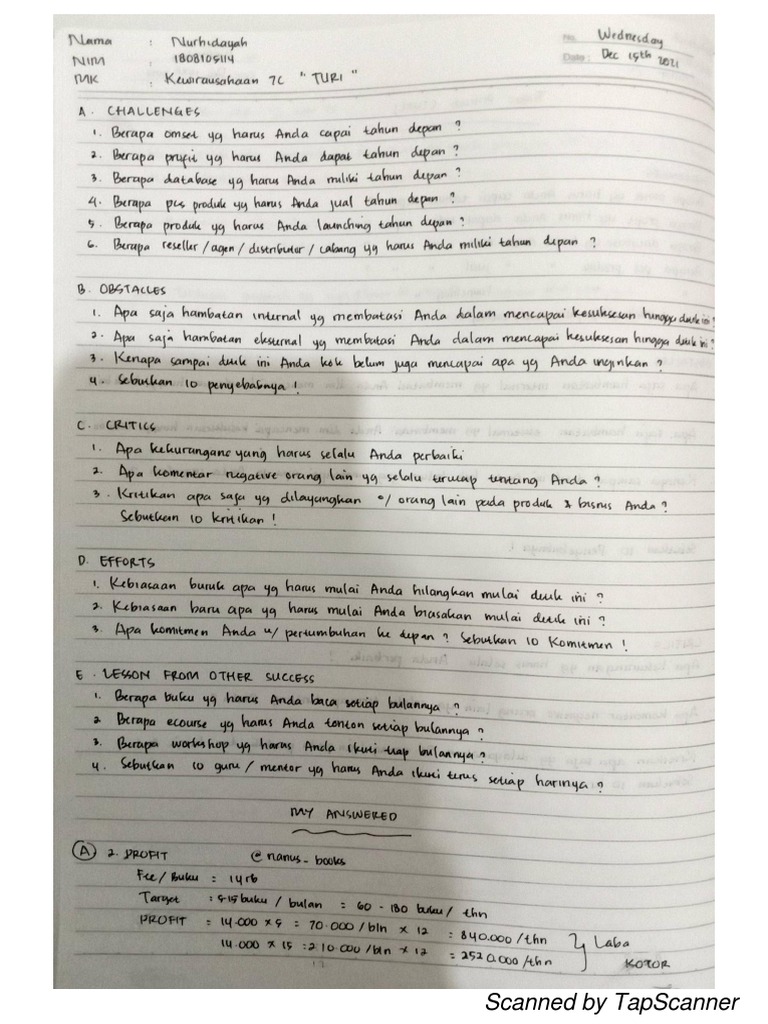 Nama : Nurhidayah
No. Wednesday
NIM : 1808105114
Date: Dec 15th 2021
MK : Kewirausahaan 7C "TURI"
A. CHALLENGES
1. Berapa omset yg harus Anda capai tahun depan ?
2. Berapa profit yg harus Anda dapat tahun depan ?
3. Berapa database yg harus Anda miliki tahun depan ?
4. Berapa pcs produk yg harus Anda jual tahun depan ?
5. Berapa produk yg harus Anda launching tahun depan ?
6. Berapa reseller / agen / distributor / cabang yg harus Anda miliki tahun depan ?
B. OBSTACLES
1. Apa saja hambatan internal yg membatasi Anda dalam mencapai kesuksesan hingga detik ini ?
2. Apa saja hambatan eksternal yg membatasi Anda dalam mencapai kesuksesan hingga detik ini ?
3. Kenapa sampai detik ini Anda kok belum juga mencapai apa yg Anda inginkan ?
4. Sebutkan 10 penyebabnya !
C. CRITICS
1. Apa kekurangans yang harus selalu Anda perbaiki
2. Apa komentar negative orang lain yg selalu terucap tentang Anda ?
3. Kritikan apa saja yg dilayangkan o/ orang lain pada produk & bisnis Anda ?
Sebutkan 10 kritikan !
D. EFFORTS
1. Kebiasaan buruk apa yg harus mulai Anda hilangkan mulai detik ini ?
2. Kebiasaan baru apa yg harus mulai Anda biasakan mulai detik ini ?
3. Apa komitmen Anda u/ pertumbuhan ke depan ? Sebutkan 10 Komitmen !
E. LESSON FROM OTHER SUCCESS
1. Berapa buku yg harus Anda baca setiap bulannya ?
2 Berapa ecourse yg harus Anda tonton setiap bulannya ?
3. Berapa workshop yg harus Anda ikuti tiap bulannya ?
4. Sebutkan 10 guru / mentor yg harus Anda ikuti terus setiap harinya ?
MY ANSWERED
A 2. PROFIT @nanus_books
Fee / Buku = 14 rb
Target : 5-15 buku / bulan = 60 - 180 buku / thn
PROFIT = 14.000 x 5 = 70.000 / bln x 12 = 840.000 / thn
14.000 x 15 = 210.000 / bln x 12 = 2520.000 / thn
Laba KOTOR
Scanned by TapScanner